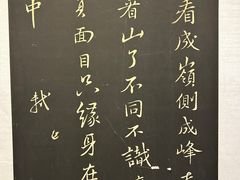 看成嶺側成峰
看山了不同不識
真面目只緣身在
中
軾